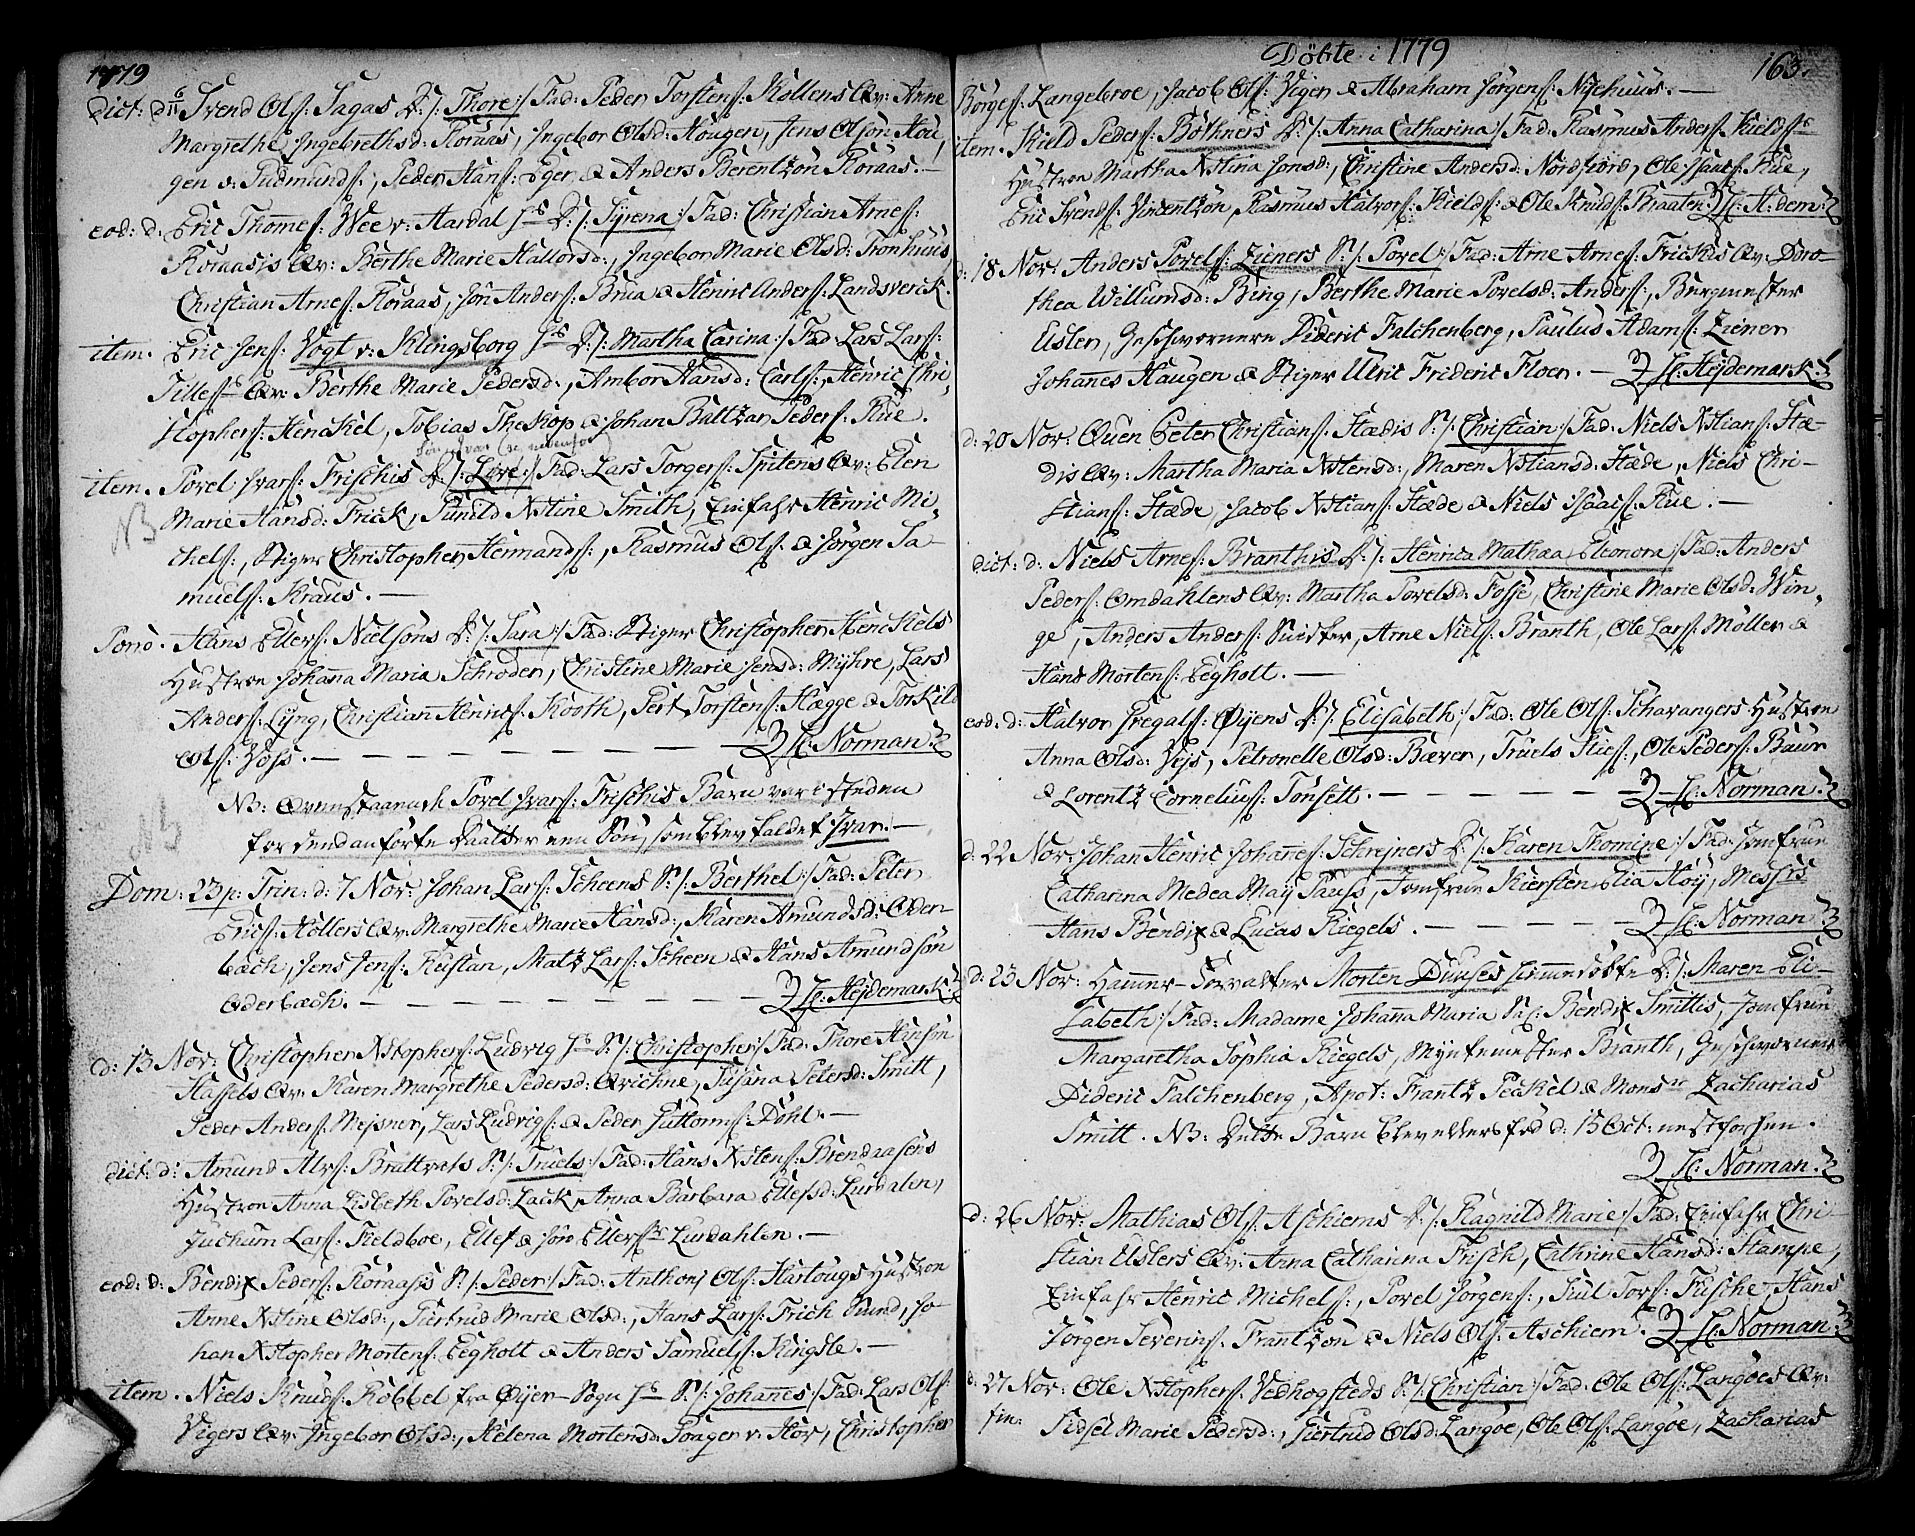 1779
dict: d: 6/11 Svend Ols: Sagas S:/: Thore :/ Fad: Peder Torstens: Kollens Qv: Anne
Margrethe Ingebrethsd: Koraas, Ingebor Olsd: Hougen, Jens Olsön Hou,
gen v: Gudmunds:, Peder Hans: Eger & Anders Berentzön Koraas. —
eod: d: Eric Thomes: Wee v: Aardal D:/: Syrena :/ Fad: Christian Arnes:
Koraasis Qv: Berthe Marie Hallorsd:, Ingebor Marie Olsd: Tronhuus
Christian Arnes: Koraas, Jön Anders: Brua & Henric Anders: Landsverck.
item. Eric Jens: Vogt v: Klingsborg D:/: Martha Carina :/ Fad: Lars Lars:
Qv: Berthe Marie Pedersd:, Ambor Hansd: Carls:, Henric Chri,
stophers: Henckel, Tobias Theskop & Johan Baltzar Peders: Rue.
item. Povel Ivars: Frischis D:/: Love :/ Fad: Lars Torgers: Spitens Qv: Elen
NB Marie Hansd: Frick, Gunild Xstine Smith, Einfahr Henric Mi,
chels:, Stiger Christopher Hermands:, Rasmus Ols: & Jörgen Sa-
muels: Kraus. —
Pono. Hans Ellers: Nielsöns D:/: Sara :/ Fad: Stiger Christopher Henckels
Hustroe Johanna Maria Schroder, Christine Marie Jensd: Myhre, Lars
Anders: Lyng, Christian Hennes: Kooth, Pert Torstens: Hægge & Torkild
Ols: Voss. — — — — — — — H: Norman.
NB: Ovenstaaende Povel Ivars: Frischis Barn var i steden
NB for dend anförte Daatter een Sön, som blev kaldet Ivar. —
Dom: 23 p: Trin: d: 7 Nov: Johan Lars: Scheens S:/: Berthel :/ Fad: Peter
Erics: Höllers Qv: Margrethe Marie Hansd:, Karen Amundsd: Oder-
bach, Jens Jens: Rustan, Matz Lars: Scheen & Hans Amundsön
Oderbach. — — — — — — — H: Hejdemark.
d: 13 Nov: Christopher Xstophers: Ludvig S:/: Christopher :/ Fad: Thore Hansön
Hassels Qv: Karen Margrethe Pedersd: Qvichne, Susana Petersd: Smitt,
Peder Anders: Mejsner, Lars Ludvigs: & Peder Guttorms: Döhl. —
dict: d: Amund Alvs: Brattvats S:/: Truels :/ Fad: Hans Xstens: Brendaasens
Hustroe Anna Lisbeth Povelsd: Lack, Anna Barbara Ellefsd: Lurdalen,
Juchum Lars: Fieldboe, Ellef & Jön Ellefs: Lurdahlen. —
eod: d: Bendix Peders: Koraass S:/: Peder :/ Fad: Anthonj Ols: Hartougs Hustroe
Anne Xstine Olsd:, Giertrud Marie Olsd:, Hans Lars: Frich Rund, Jo-
han Xstopher Mortens: Eegholt & Anders Samuels: Kingsle. —
item. Niels Knuds: Röbbel fra Öyer Sogn S:/: Johannes :/ Fad: Lars Ols:
Vigers Qv: Ingebor Olsd:, Helena Mortensd: v: Hov, Christopher
Döbte i 1779 163.
Börges: Langebroe, Jacob Ols: Viger & Abraham Jörgens: Nyehuus. —
item. Kield Peders: Böthners D:/: Anna Catharina :/ Fad: Rasmus Anders: Kields
Hustroe Martha Xstina Jonsd:, Christine Andersd: Nordfiord, Ole Isaacs: Rue,
Eric Svends: Vincentzön, Rasmus Halvors: Kields: & Ole Knuds: Braaten. H: H:dem:
d: 18 Nov: Anders Povels: Zieners S:/: Povel :/ Fad: Arne Arnes: Frickis Qv: Doro-
thea Willumsd: Bing, Berthe Marie Povelsd: Anders:, Bergmester
Esler, Geschworner Dideric Falchenberg, Paulus Adams: Ziener
Johannes Haugen & Stiger Ulric Frideric Floer. — H: Hejdemark.
d: 20 Nov: Quen Peter Christians: Hædis S:/: Christian :/ Fad: Niels Xstians: Hæ-
dis Qv: Martha Maria Xstensd:, Maren Xstiansd: Hæde, Niels Chri-
stians: Hæde, Jacob Xstians: Hæde & Niels Isaacs: Rue. —
dict: d: Niels Arnes: Branthis D:/: Henrica Mathea Eleonora :/ Fad: Anders
Peders: Omdahlens Qv: Martha Povelsd: Fosse, Christine Marie Olsd: Win,
ge, Anders Anders: Smister, Arne Niels: Branth, Ole Lars: Möller &
Hans Mortens: Eegholt. —
eod: d: Halvor Gregals: Öyens D:/: Elisabeth :/ Fad: Ole Ols: Schavangers Hustroe
Anna Olsd: Vejs, Petronelle Olsd: Bæver, Truels Ries:, Ole Peders: Baur
& Lorentz Cornelius: Tönsett. — — — — — H: Norman.
d: 22 Nov: Johan Henric Johannes: Schrejners D:/: Karen Thomine :/ Fad: Jomfrue
Catharina Medea May Pauss, Jomfrue Kiersten Elia Höy, Messrs
Hans Bendix & Lucas Riegels. — — — — H: Norman
d: 23 Nov: Hammer-Forvalter Morten Duuses hiemmedöbte D:/: Maren Eli-
sabeth :/ Fad: Madame Johanna Maria Sa: Bendix Smittis, Jomfrue
Margaretha Sophia Riegels, Myntemester Branth, Geschworner
Dideric Falchenberg, Apot: Frantz Peckel & Monsr Zacharias
Smitt. NB: Dette Barn blev ellers föd d: 15 Oct: nestforhen.
H: Norman.
d: 26 Nov: Mathias Ols: Aschiems D:/: Ragnild Marie :/ Fad: Einfahr Chri-
stian Eslers Qv: Anna Catharina Frisch, Cathrine Hansd: Stampe,
Einfahr Henric Michels:, Povel Jörgens:, Juul Tors: Fusche, Hans
Jörgen Severins: Frantzön & Niels Ols: Aschiem. H: Norman.
d: 27 Nov: Ole Xstophers: Vedhogsteds S:/: Christian :/ Fad: Ole Ols: Langöes Qv:
Sidsel Marie Pedersd:, Giertrud Olsd: Langöe, Ole Ols: Langöe, Zacharias